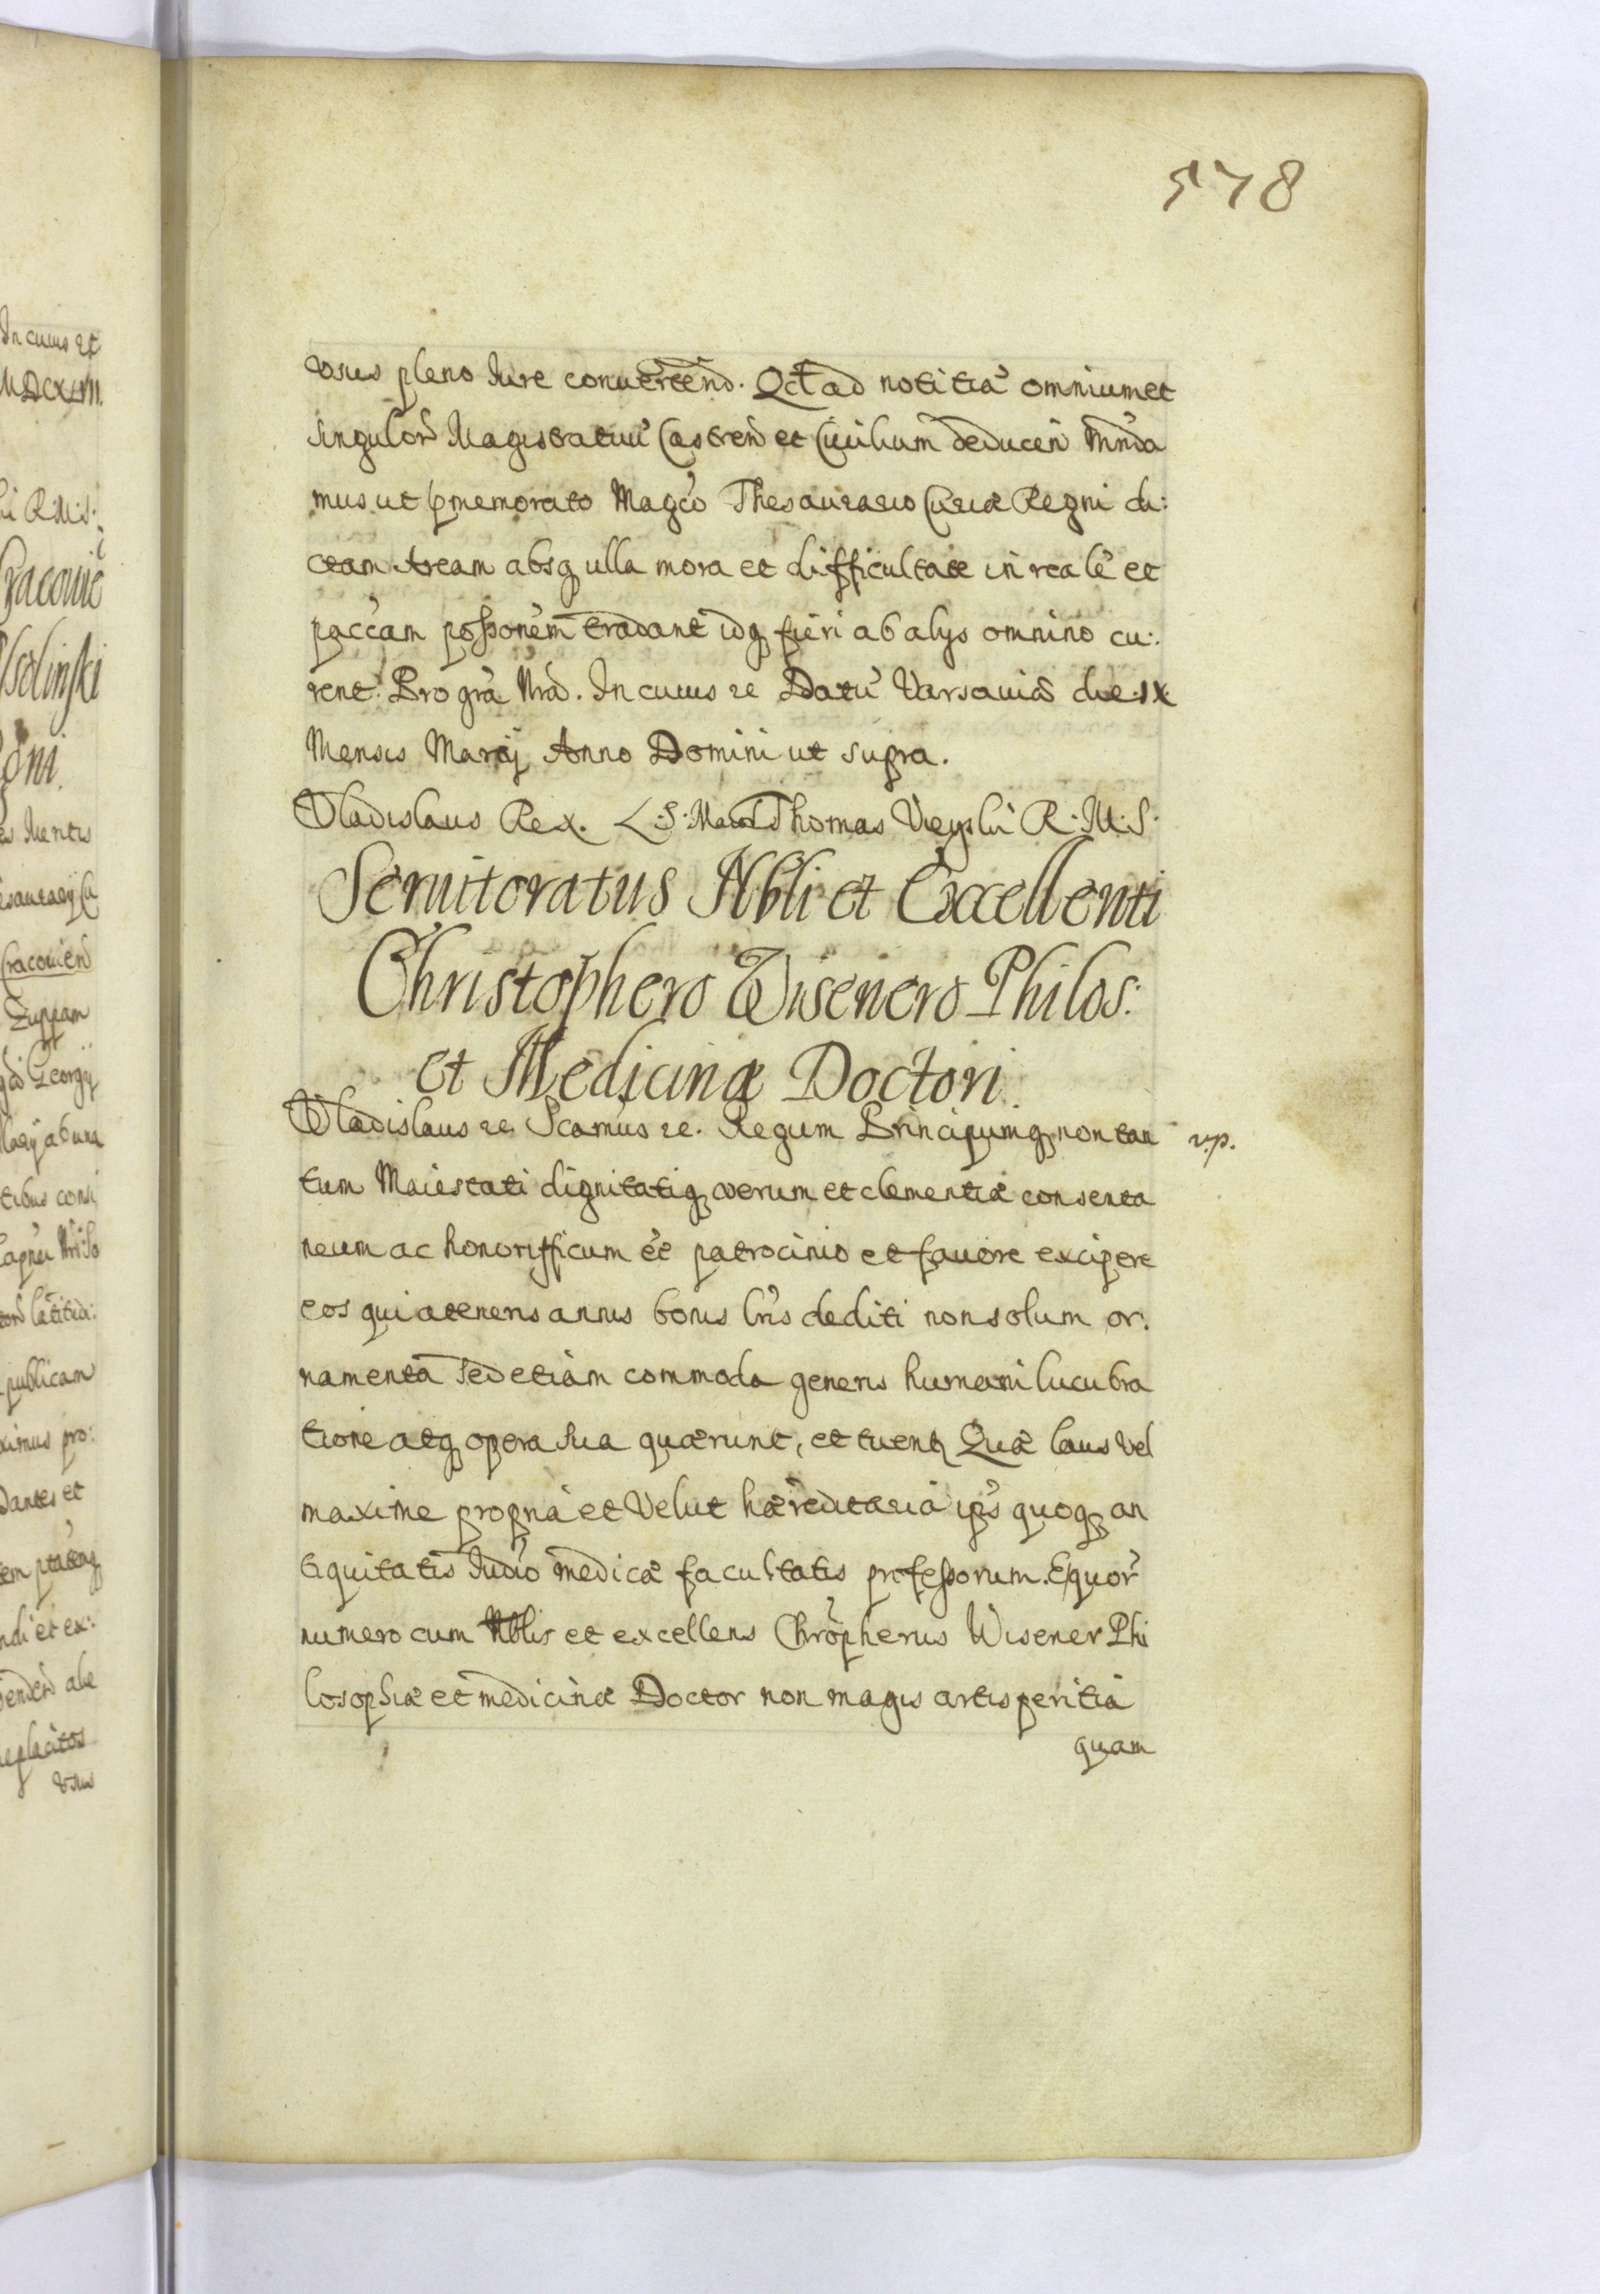 578
In cuius rei
MDCXLIII.
R.M.S.
Cracouie
Ossolinski
gni.
Cracouien
Zuppam
Georgij
ab una
tibus consi
publicam
ximus pro:
Dantes et
ndi et ex:
eplacitos
vsus
vsus pleno Iure conuertend. Qct ad notitiã omnium et
singulor Magistratuũ Castren et Ciuilium deducen Mnda
mus ut pmemorato Magco Thesaurario Curiæ Regni di:
ctam Aream absq ulla mora et difficultate in realẽ et
paccam possonem tradant idq fieri ab alys omnino cu:
rent. Pro gra Nra. In cuius re Datũ Varsauiæ die IX
Mensis Marcij Anno Domini ut supra.
Vladislaus Rex. L.S. Thomas Vieyski R.M.S.
Seruitoratus Nbli et Excellenti
Christophero Wisenero Philos:
et Medicinæ Doctori.
Vladislaus re. Scamus re. Regum Principumq non tan
v.p.
tum Maiestati dignitatiq verum et clementiæ consenta
neum ac honorifficum eẽ patrocinio et fauore excipere
eos qui a teneris annis bonis lris dediti non solum or:
namenta sed etiam commoda generis humani lucubra
tione atq opera sua quærunt, et tuentr Quæ laus vel
maxime propria et velut hæreditaria ipis quoq an
tiquitatis Iudio medicæ facultatis professorum. E quor
numero cum Nblis et excellens Chropherus Wisener Phi
losophiæ et medicinæ Doctor non magis artis peritia
quam